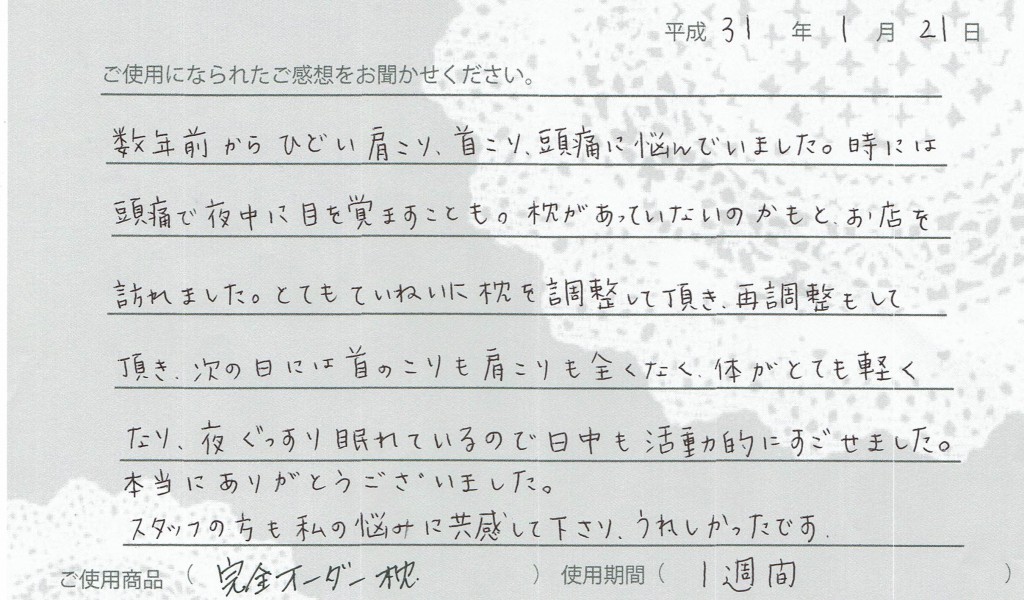 平成 31 年 1 月 21 日
ご使用になられたご感想をお聞かせください。
数年前からひどい肩こり、首こり、頭痛に悩んでいました。時には
頭痛で夜中に目を覚ますことも。枕があっていないのかもと、お店を
訪れました。とてもていねいに枕を調整して頂き、再調整もして
頂き、次の日には首のこりも肩こりも全くなく、体がとても軽く
なり、夜ぐっすり眠れているので日中も活動的にすごせました。
本当にありがとうございました。
スタッフの方も私の悩みに共感して下さり、うれしかったです.
ご使用商品 （ 完全オーダー枕 ） 使用期間（ 1週間 ）